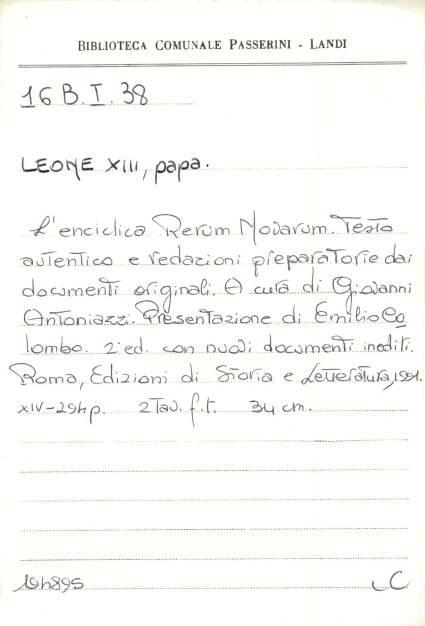 BIBLIOTECA COMUNALE PASSERINI - LANDI
16 B. I. 38
LEONE XIII, papa.
L'enciclica Rerum Novarum. Testo
autentico e redazioni preparatorie dai
documenti originali. A cura di Giovanni
Antoniazzi. Presentazione di Emilio Co
lombo. 2ª ed. con nuovi documenti inediti.
Roma, Edizioni di Storia e Letteratura, 1991.
XIV-294 p. 2 Tav. f.t. 34 cm.
194895
C